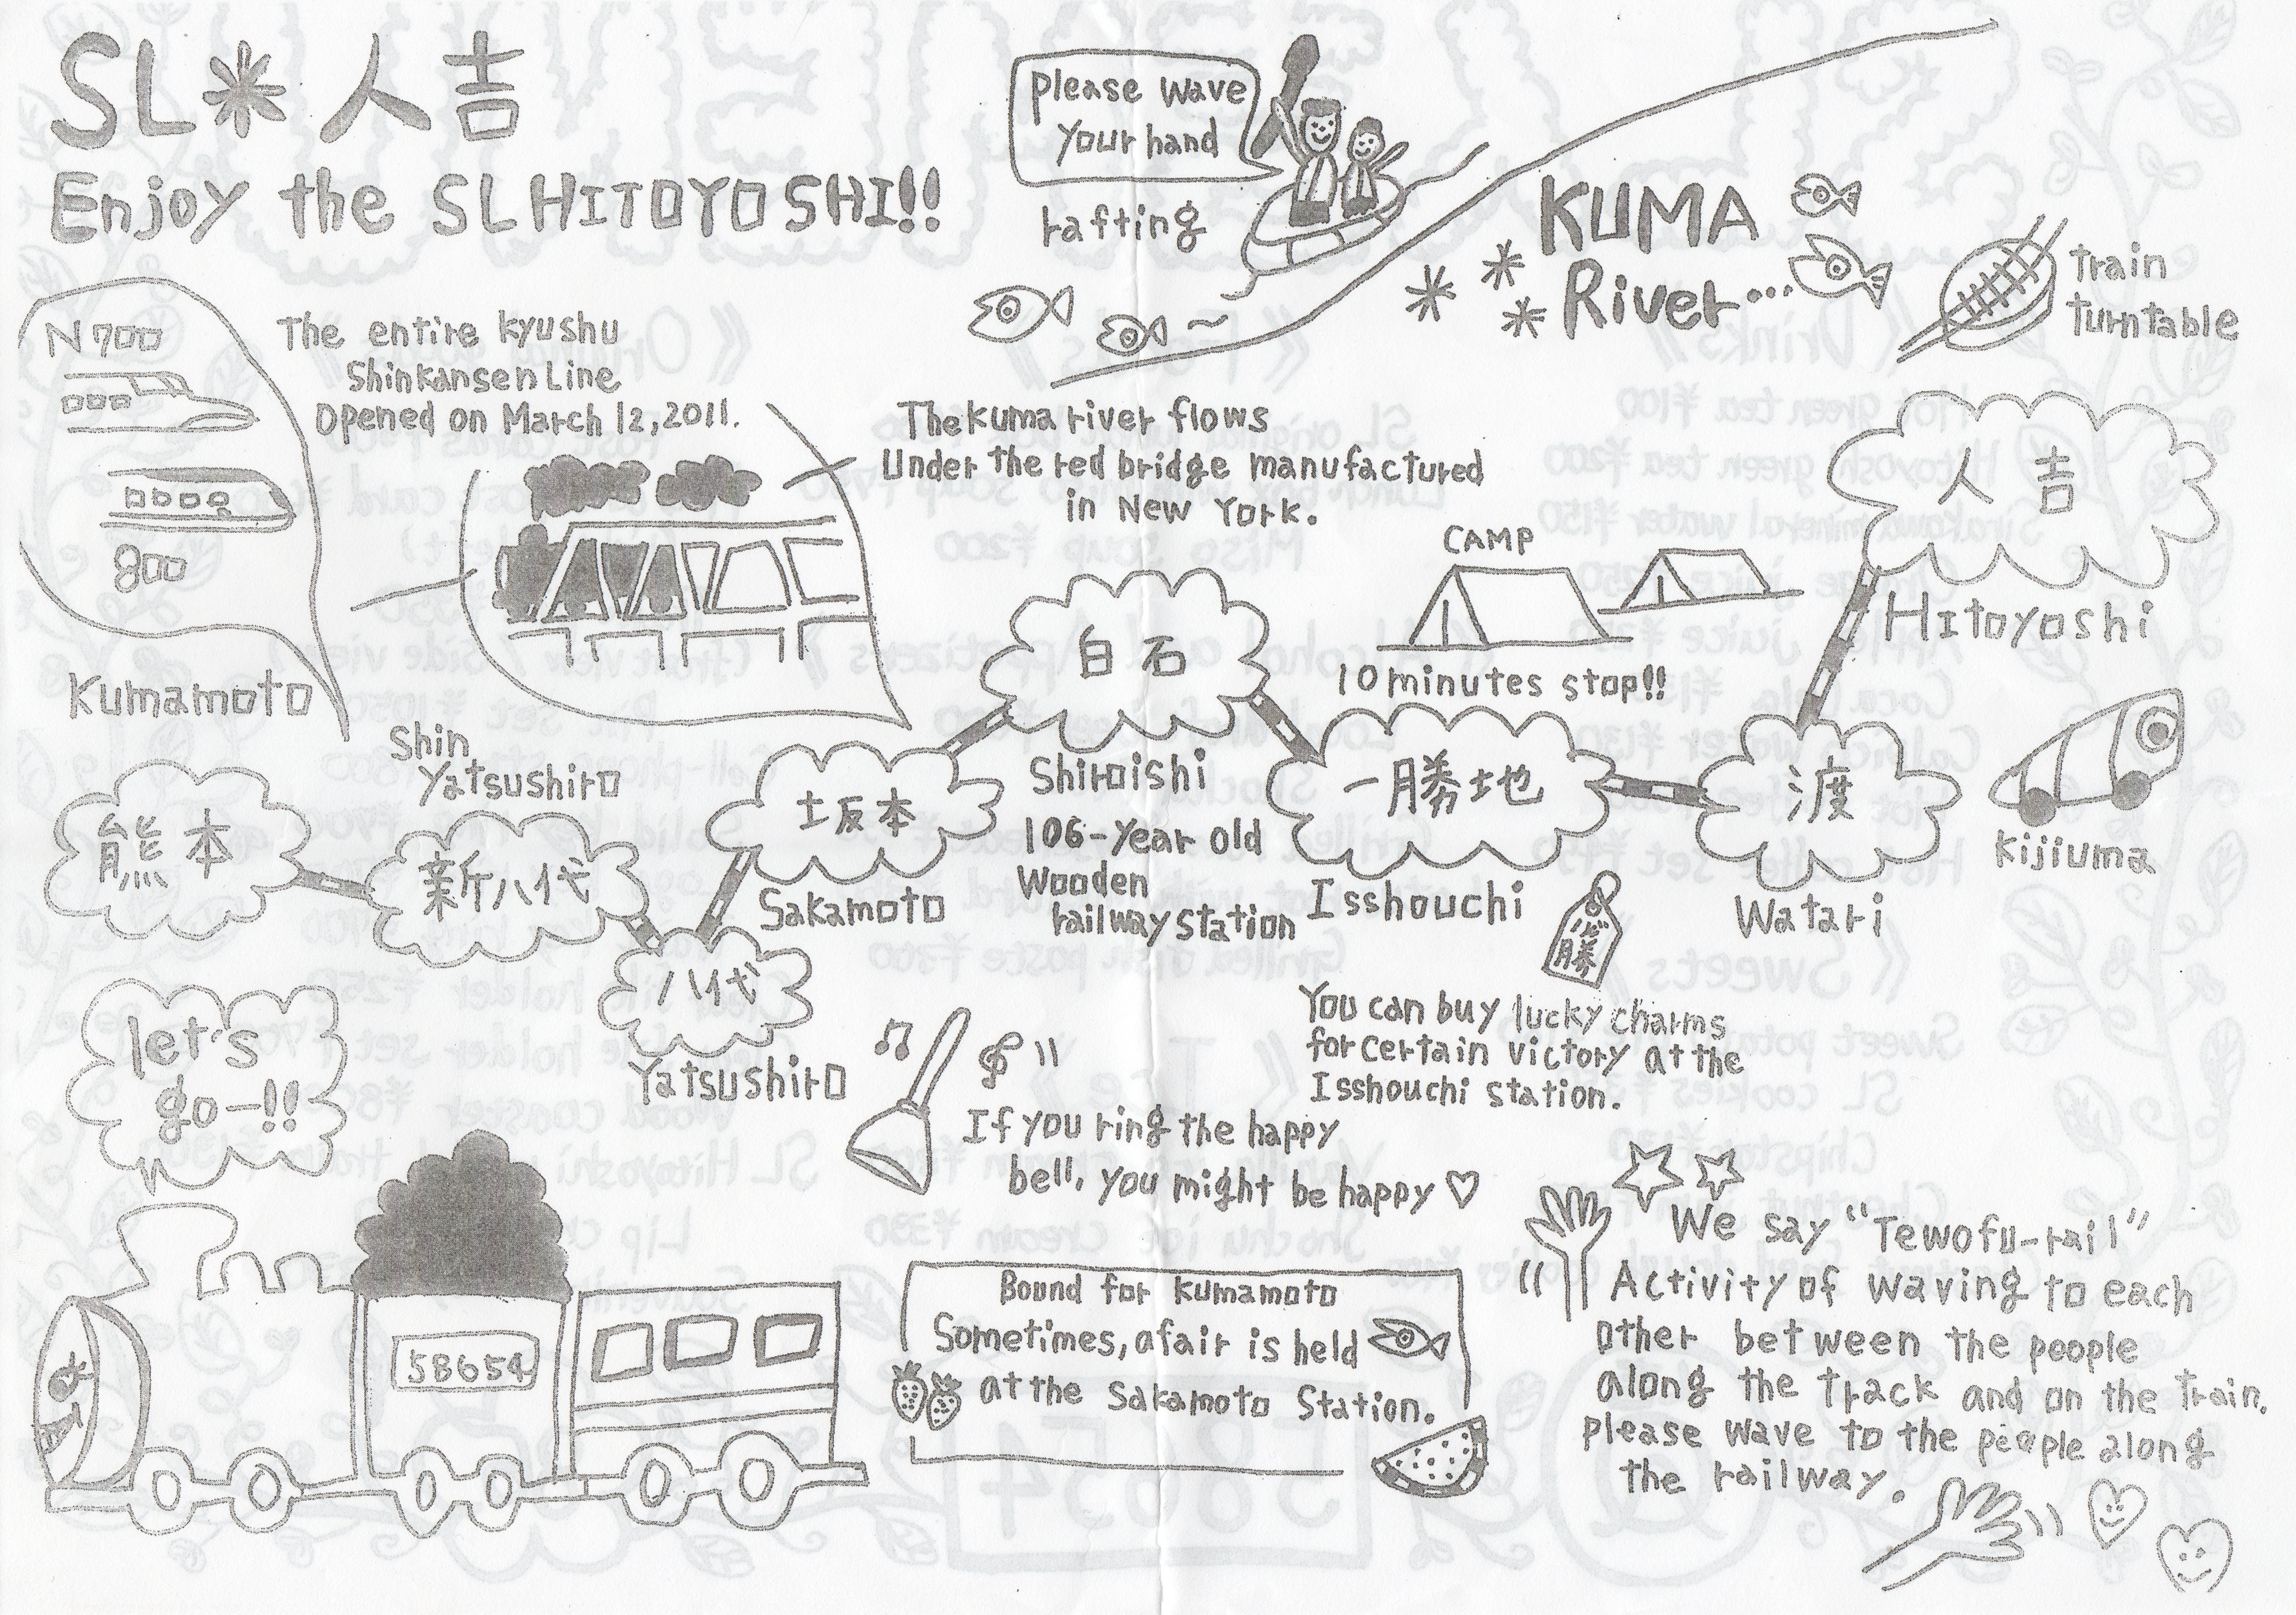 SL*人吉
Enjoy the SL HITOYOSHI!!
Please wave
your hand
rafting
KUMA
River...
train
turntable
N700
800
Kumamoto
The entire kyushu
Shinkansen Line
Opened on March 12, 2011.
The kuma river flows
Under the red bridge manufactured
in New York.
CAMP
10 minutes stop!!
人吉
Hitoyoshi
白石
Shiroishi
106-year old
Wooden
railway station
一勝地
Isshouchi
渡
Watari
Kijiuma
熊本
Shin
Yatsushiro
新八代
坂本
Sakamoto
八代
Yatsushiro
必勝
You can buy lucky charms
for certain victory at the
Isshouchi station.
let's
go-!!
If you ring the happy
bell, you might be happy♡
58654
Bound for Kumamoto
Sometimes, a fair is held
at the Sakamoto Station.
We say "Tewofu-rail"
Activity of waving to each
other between the people
along the track and on the train.
Please wave to the people along
the railway.